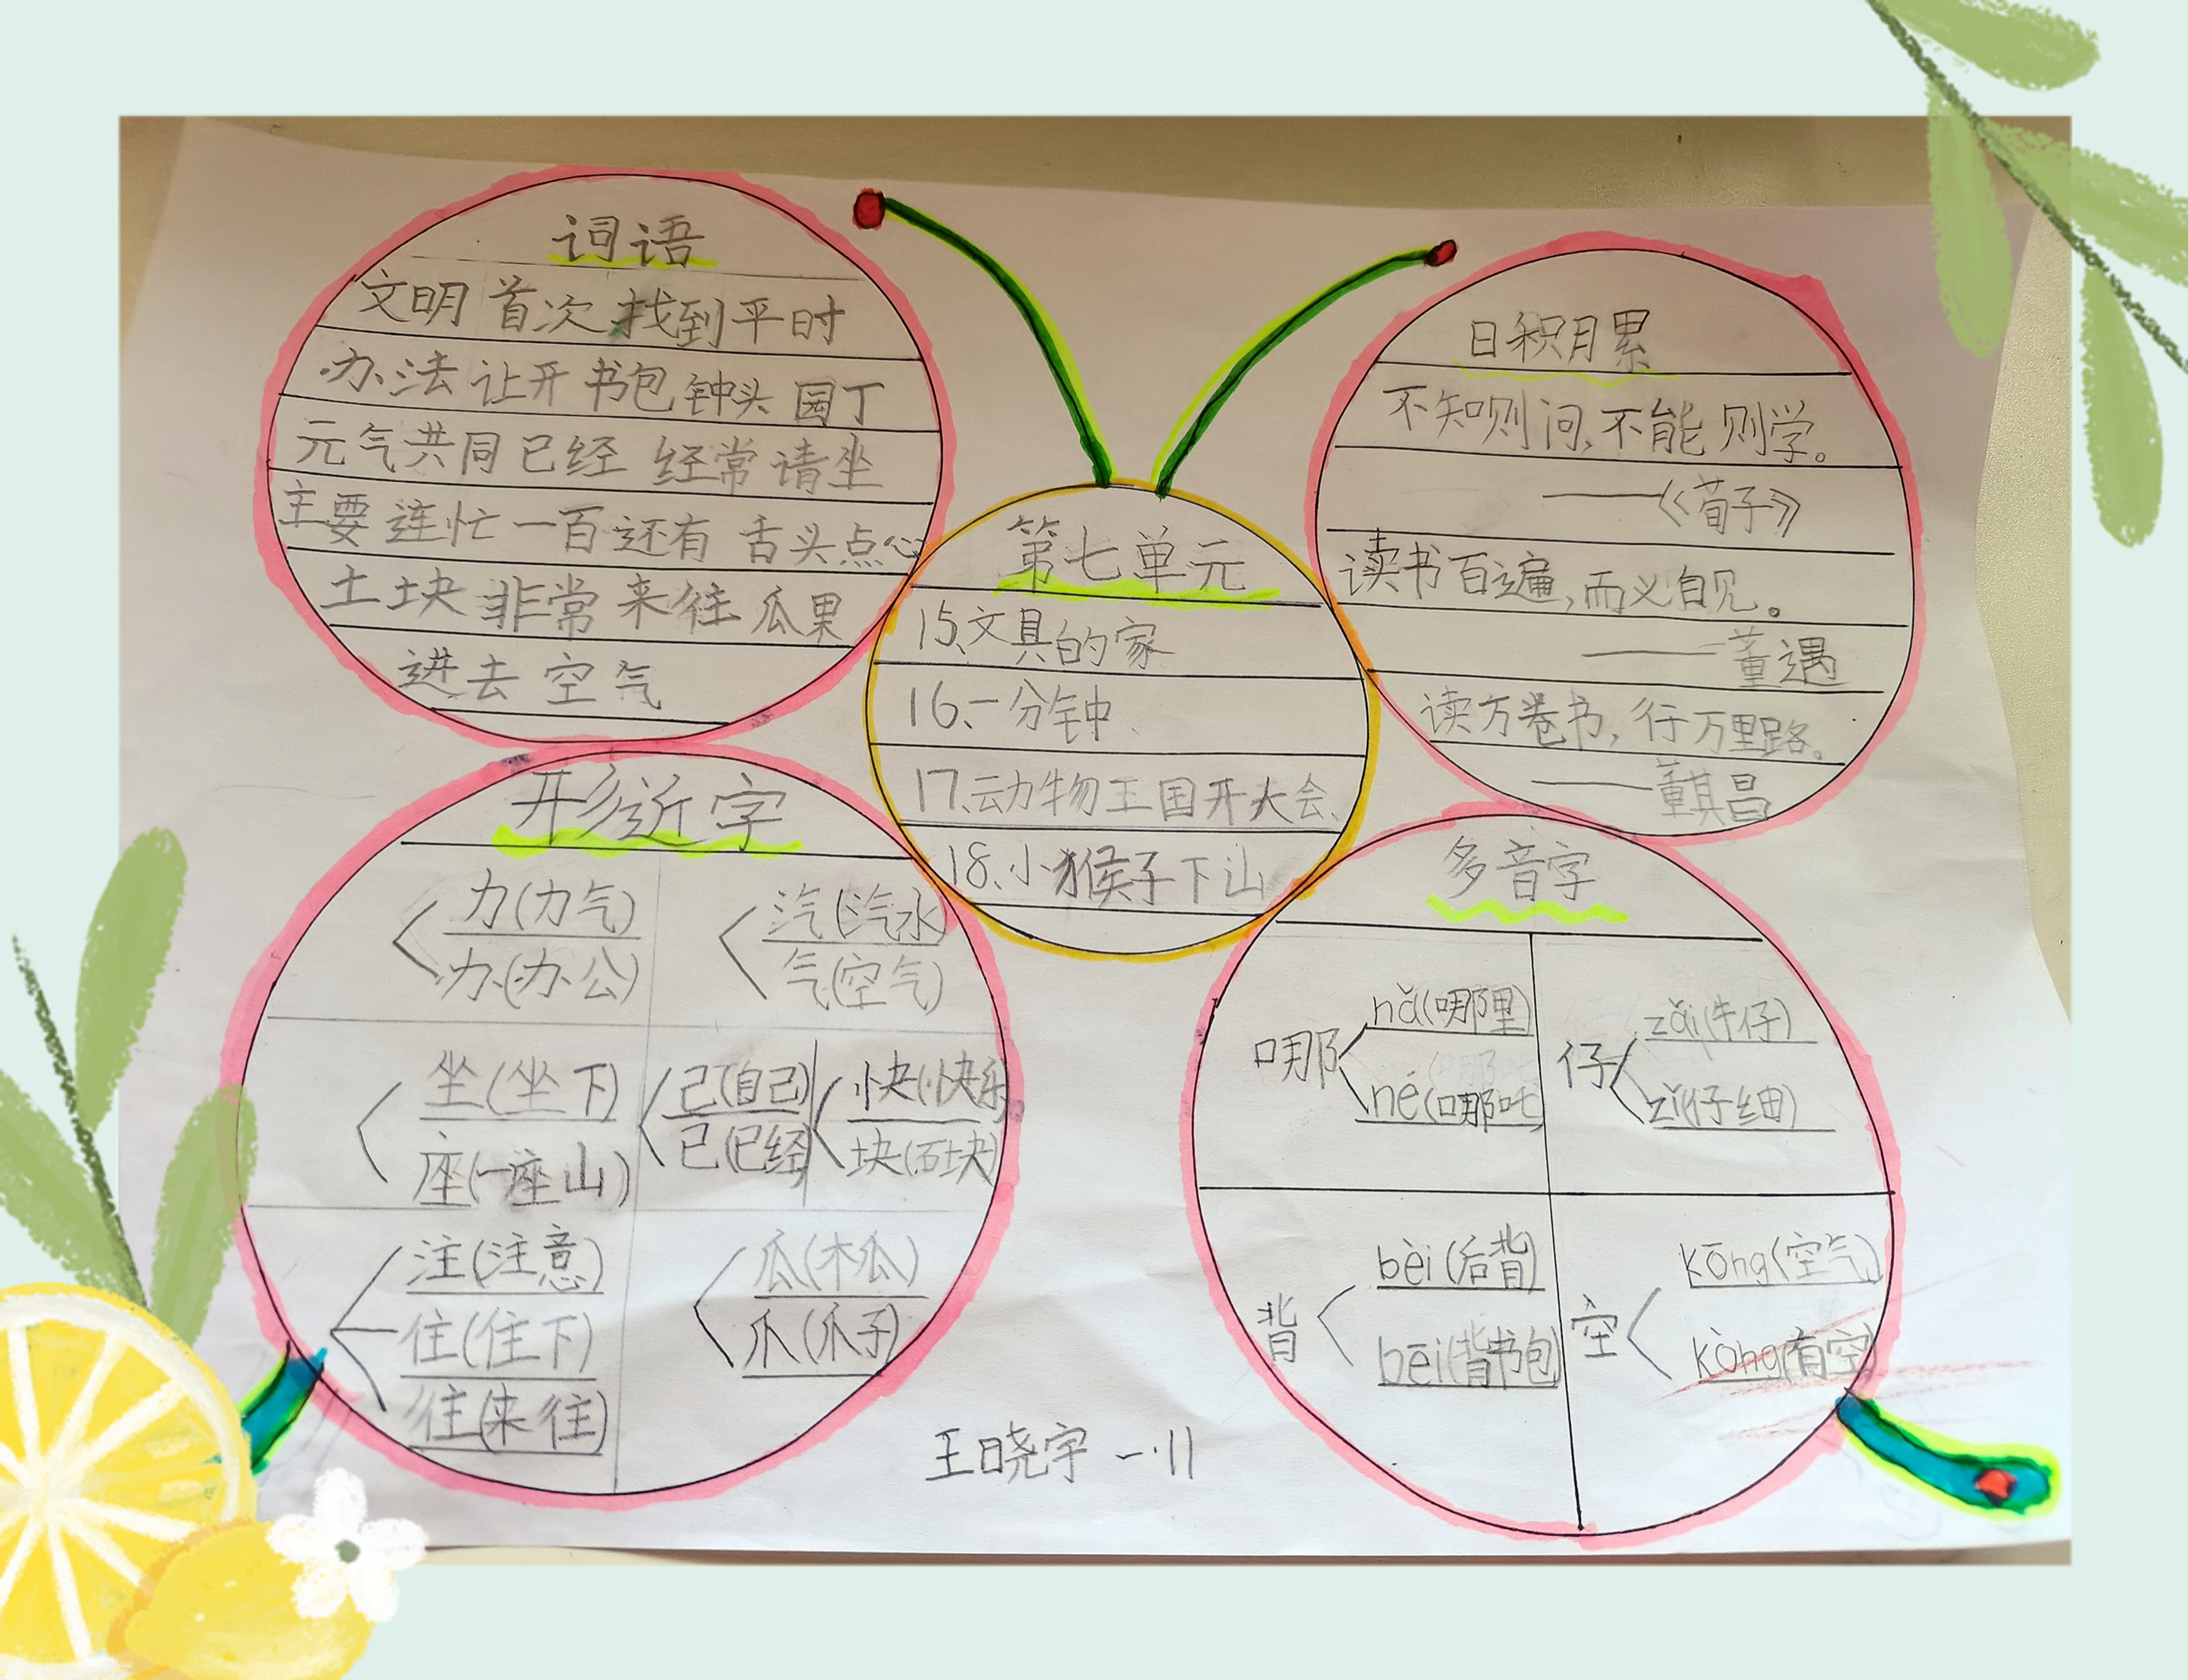 词语
文明 首次 找到 平时
办法 让开 书包 钟头 园丁
元气 共同 已经 经常 请坐
主要 连忙 一百 还有 舌头 点心
土块 非常 来往 瓜果
进去 空气
第七单元
15、文具的家
16、一分钟、
17、动物王国开大会、
18、小猴子下山
日积月累
不知则问,不能则学。
——《荀子》
读书百遍,而义自见。
——董遇
读万卷书,行万里路。
——董其昌
形近字
力(力气)
办(办公)
汽(汽水)
气(空气)
坐(坐下)
座(一座山)
己(自己)
已(已经)
快(快乐)
块(石块)
注(注意)
住(住下)
往(来往)
瓜(木瓜)
爪(爪子)
多音字
哪
nǎ(哪里)
né(哪吒)
仔
zǎi(牛仔)
zǐ(仔细)
背
bèi(后背)
bēi(背书包)
空
kōng(空气)
kòng(有空)
王晓宇 一.11